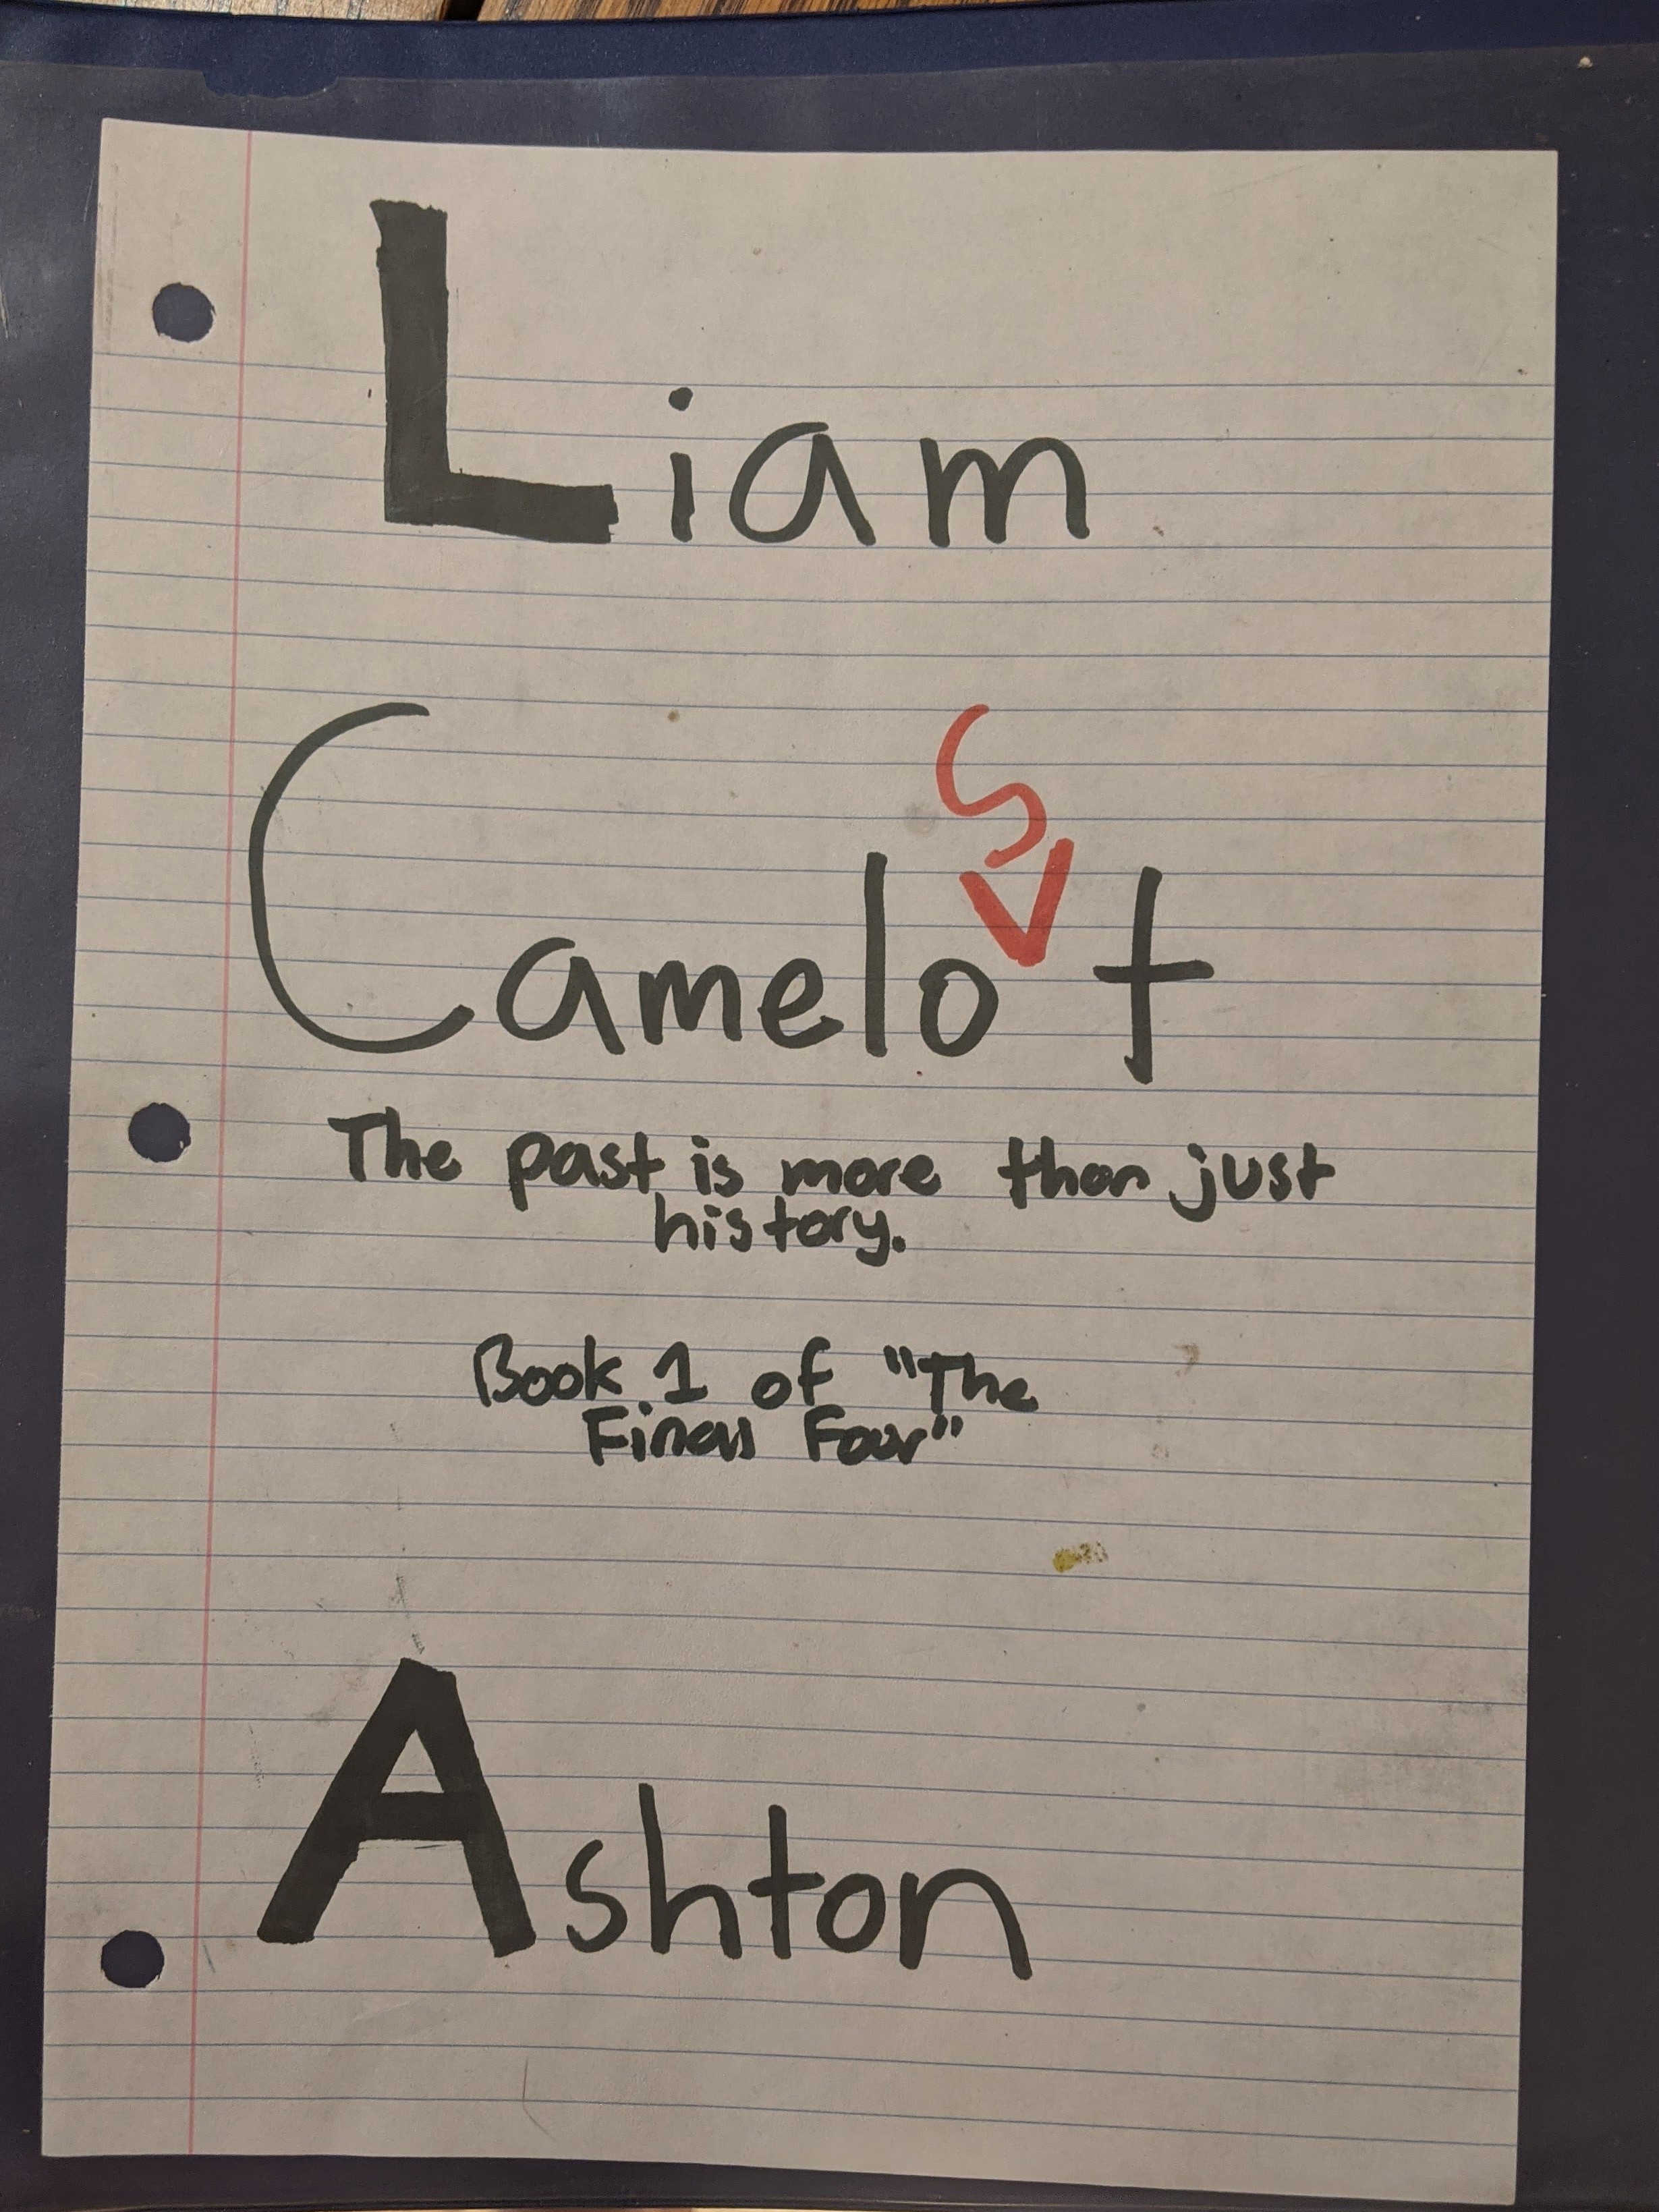 Liam
S
V
Camelot
The past is more than just
history.
Book 1 of "The
Final Four"
Ashton